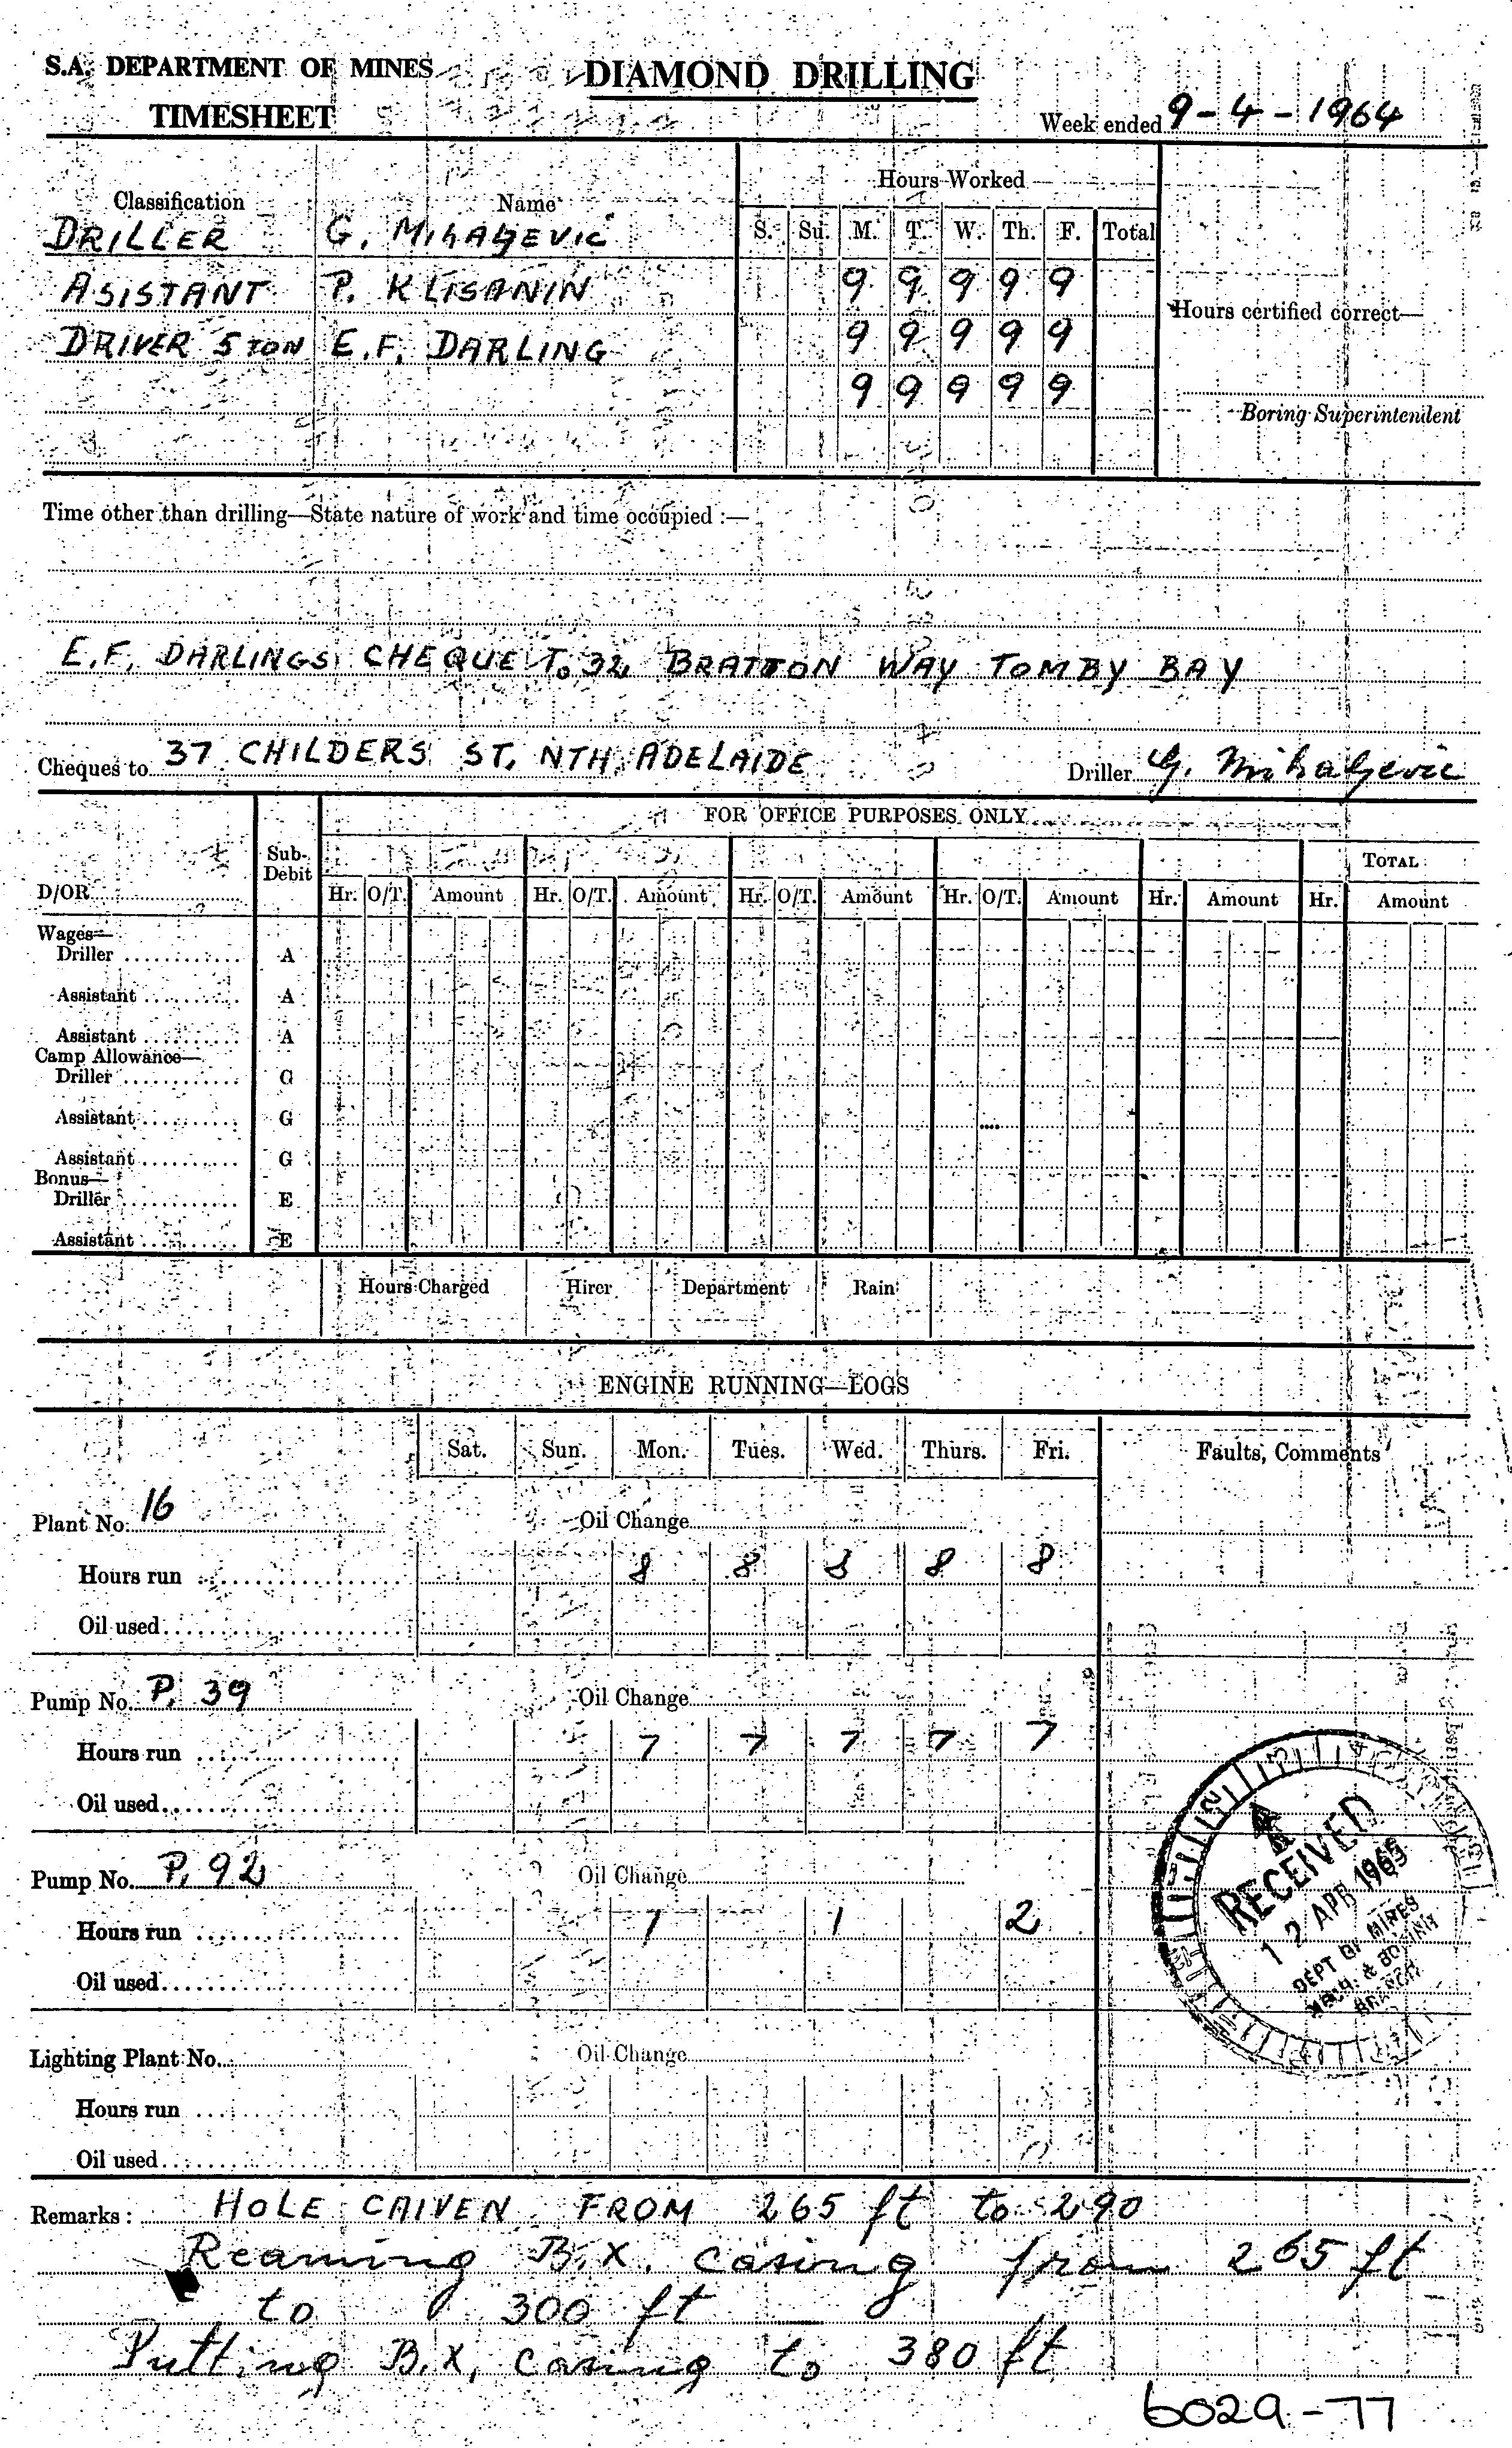 S.A. DEPARTMENT OF MINES DIAMOND DRILLING
TIMESHEET
Week ended 9-4-1964
Classification Name Hours Worked
S. Su. M. T. W. Th. F. Total
DRILLER G. MIHALJEVIC
ASISTANT P. KLISANIN 9 9 9 9 9
Hours certified correct—
DRIVER 5 TON E.F. DARLING 9 9 9 9 9
9 9 9 9 9
Boring Superintendent
Time other than drilling—State nature of work and time occupied :—
E.F. DARLINGS CHEQUE To 32 BRATTON WAY TOMBY BAY
Cheques to 37 CHILDERS ST. NTH. ADELAIDE Driller G. Mihaljevic
FOR OFFICE PURPOSES ONLY
D/OR Sub-Debit TOTAL
Hr. O/T. Amount Hr. O/T. Amount Hr. O/T. Amount Hr. O/T. Amount Hr. Amount Hr. Amount
Wages—
Driller A
Assistant A
Assistant A
Camp Allowance—
Driller G
Assistant G
Assistant G
Bonus—
Driller E
Assistant E
Hours Charged Hirer Department Rain
ENGINE RUNNING—LOGS
Sat. Sun. Mon. Tues. Wed. Thurs. Fri. Faults, Comments
Plant No. 16 Oil Change
Hours run 8 8 8 8 8
Oil used
Pump No. P. 39 Oil Change
Hours run 7 7 7 7 7
Oil used
Pump No. P. 92 Oil Change
Hours run 1 1 2
Oil used
RECEIVED
12 APR
DEPT OF MINES
MECH. & BORING
BRANCH
Lighting Plant No. Oil Change
Hours run
Oil used
Remarks : HOLE CAIVEN FROM 265 ft to 290
Reaming B.X. casing from 265 ft
to 300 ft
Putting B.X. casing to 380 ft
6029-77